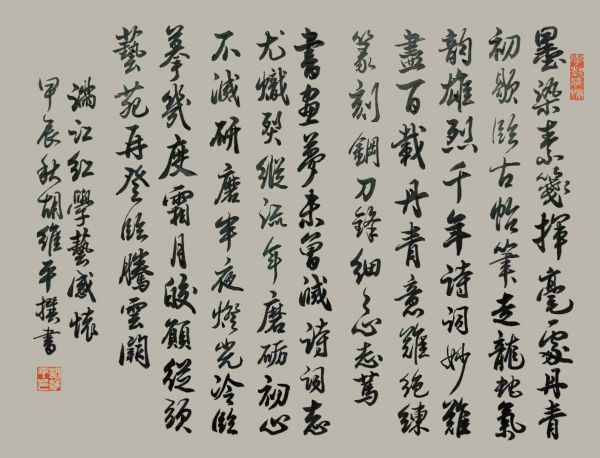 墨染素箋揮毫處丹青
初歇臨古帖筆走龍蛇氣
韻雄烈千年詩詞妙難
盡百載丹青意難絕練
篆刻鋼刀鋒細々心志篤
書畫夢未曾滅詩詞志
尤熾烈縱流年磨礪初心
不滅研磨半夜燈光冷臨
摹幾度霜月皎願從頭
藝苑再登臨騰雲闕
滿江紅學藝感懷
甲辰秋胡維平撰書